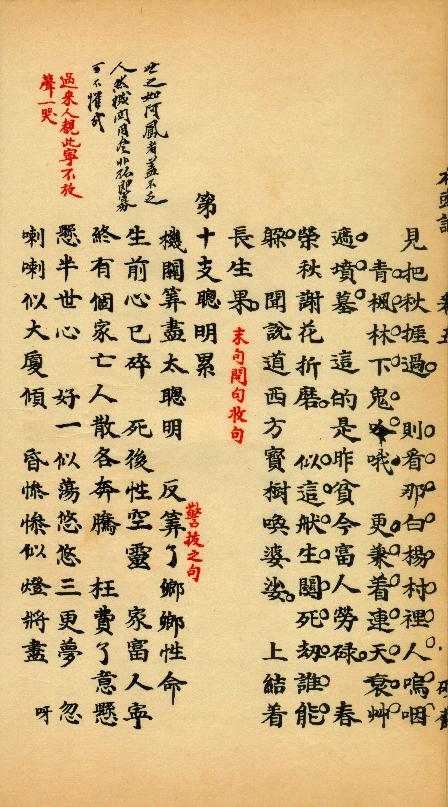 見把秋捱過 則看那白楊村裡人嗚咽
青楓林下鬼吟哦 更兼着連天衰艸
遮墳墓 這的是昨貧今富人勞碌 春
榮秋謝花折磨 似這般生關死劫誰能
躲 聞說道西方寶樹喚婆娑 上結着
長生果
末句開句收句
第十支聰明累
機關筭盡太聰明 反筭了鄉鄉性命
警拔之句
生前心已碎 死後性空靈 家富人寧
終有個家亡人散各奔騰 枉費了意懸
懸半世心 好一似蕩悠悠三更夢 忽
喇喇似大廈傾 昏慘慘似燈將盡 呀
世之如阿鳳者蓋不乏
人然機關用盡非孤即寡
可不懼哉
過來人覩此寧不放
聲一哭